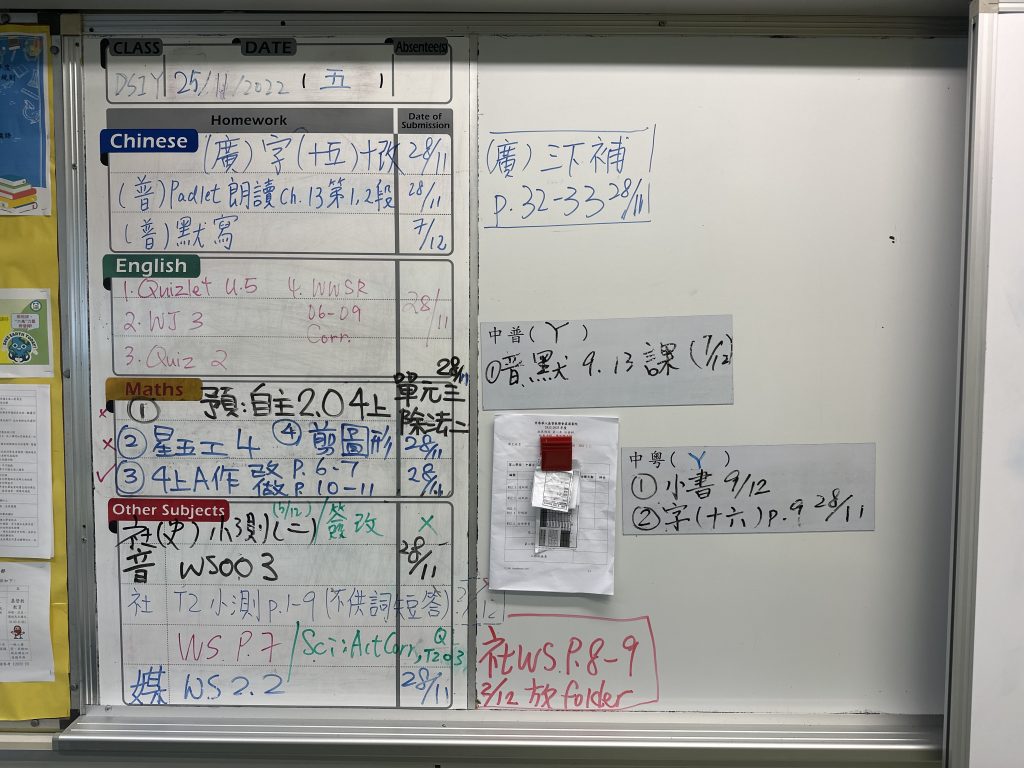 CLASS DATE Absentee(s)
DS1Y 25/11/2022 (五)
Homework Date of Submission
Chinese
(廣)字(十五)十改 28/11
(普)Padlet 朗讀 Ch.13 第1,2段 28/11
(普)默寫 7/12
English
1. Quizlet U.5 4. WWSR
2. WJ 3 06-09 28/11
Corr.
3. Quiz 2
Maths
① 預:自主2.0 4上 單元三 28/11
除法二
② 星五工 4 ④ 剪圖形 28/11
③ 4上A作 p.6-7 28/11
p.10-11
Other Subjects
社(史)小測(二) (5/12) 簽改 x
音 WS003 28/11
社 T2 小測 p.1-9 (不供詞短答)
WS. P.7 / Sci: Act Corr,
媒 WS 2.2 28/11
(廣)三下補
p.32-33 28/11
中普(Y)
①普默 9.13課 (7/12)
中粵(Y)
①小書 9/12
②字(十六)p.9 28/11
社WS.P.8-9
2/12 放folder